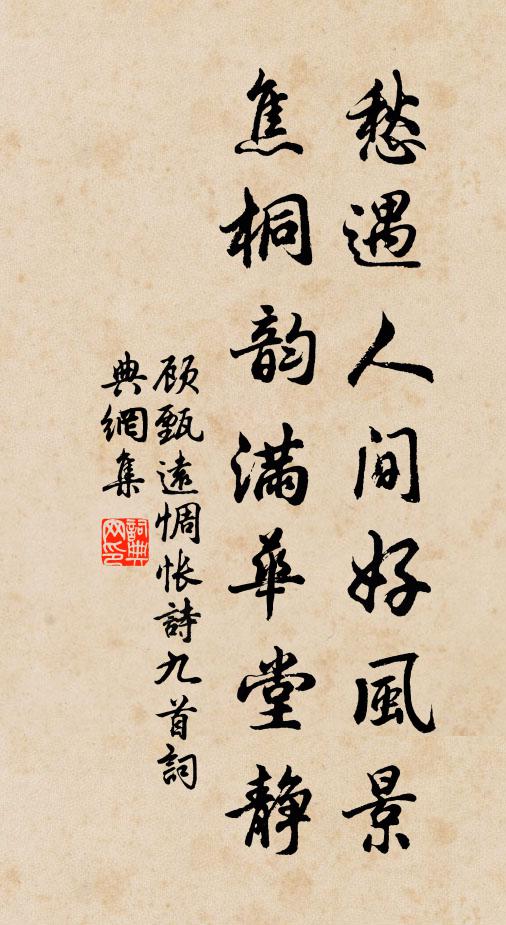 愁遇人间好風景
焦桐韵满華堂靜
顾甄遠惆怅詩九首詞
典網集
詞典网印